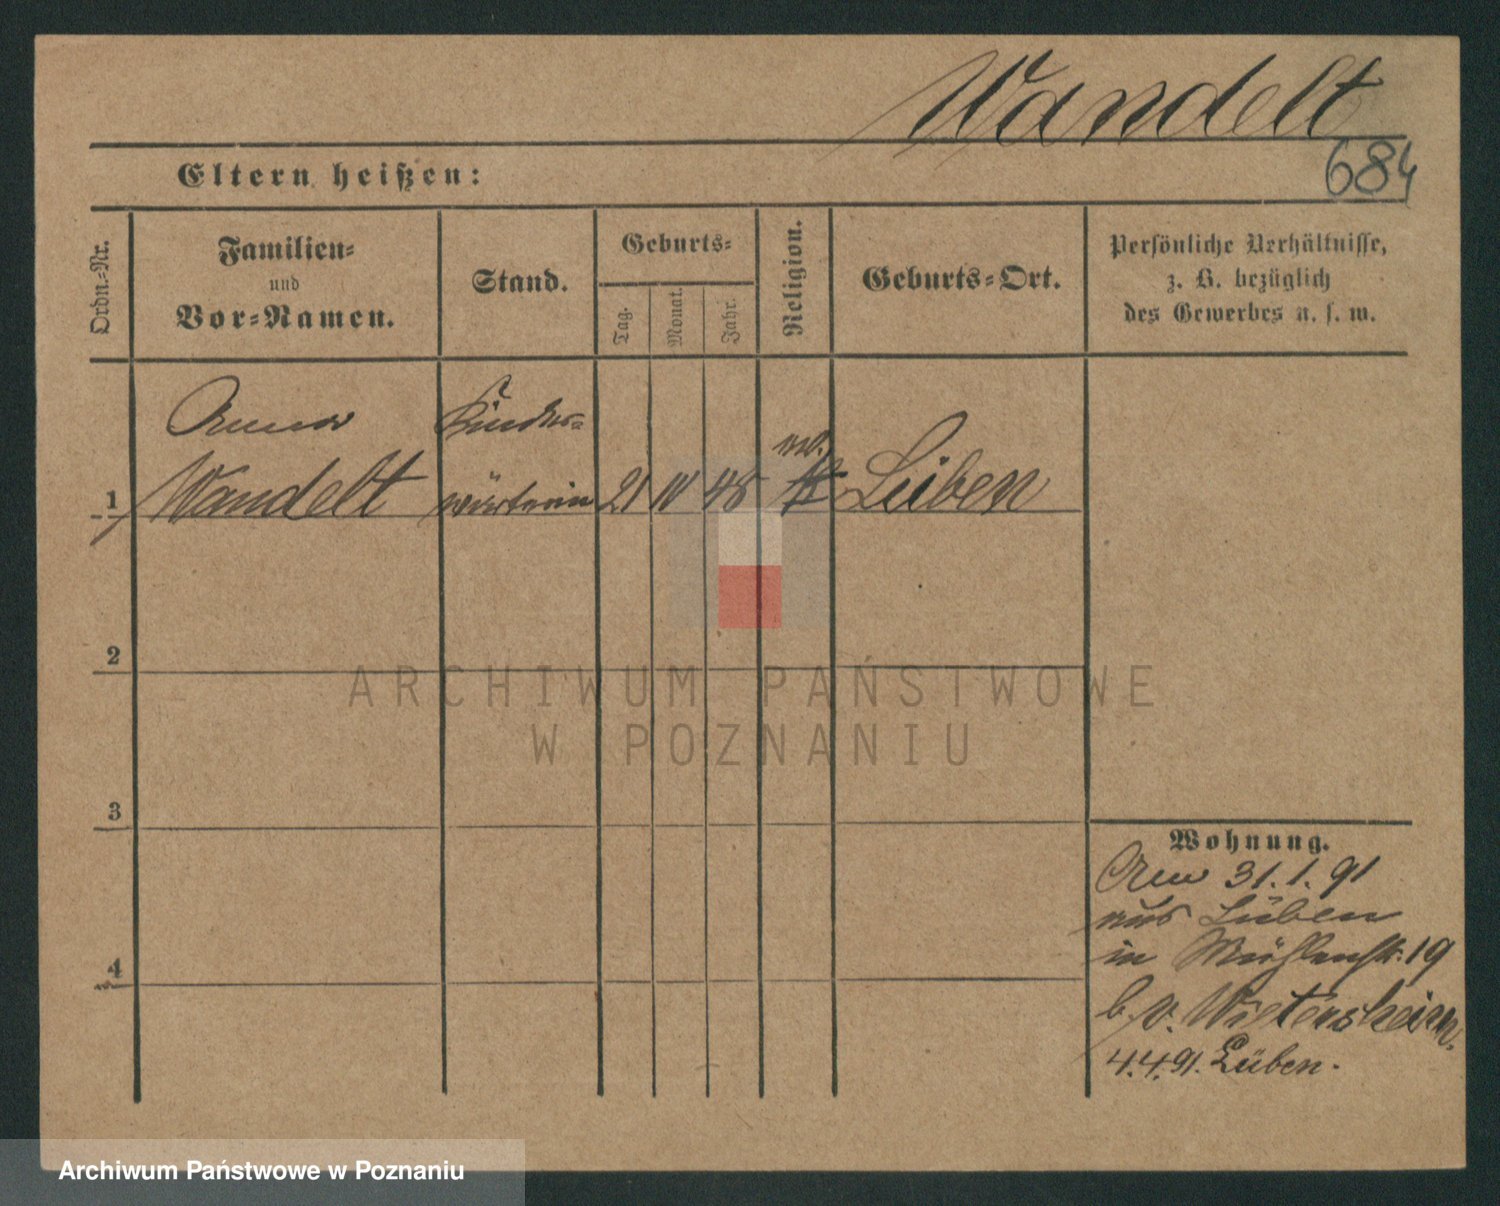 Wandelt
684
Eltern heißen:
Ordn.-Nr.
Familien-
und
Vor-Namen.
Stand.
Geburts-
Tag.
Monat.
Jahr.
Religion.
Geburts-Ort.
Persönliche Verhältnisse,
z. B. bezüglich
des Gewerbes u. s. w.
Anna Kinder-
ev.
1 Wandelt wärterin 21 IV 48 Lüben
2
3
4
Wohnung.
Am 31.1.91
aus Lüben
in Mühlenstr. 19
b. v. Wietersheim.
4.4.91. Lüben.
ARCHIWUM PAŃSTWOWE
W POZNANIU
Archiwum Państwowe w Poznaniu